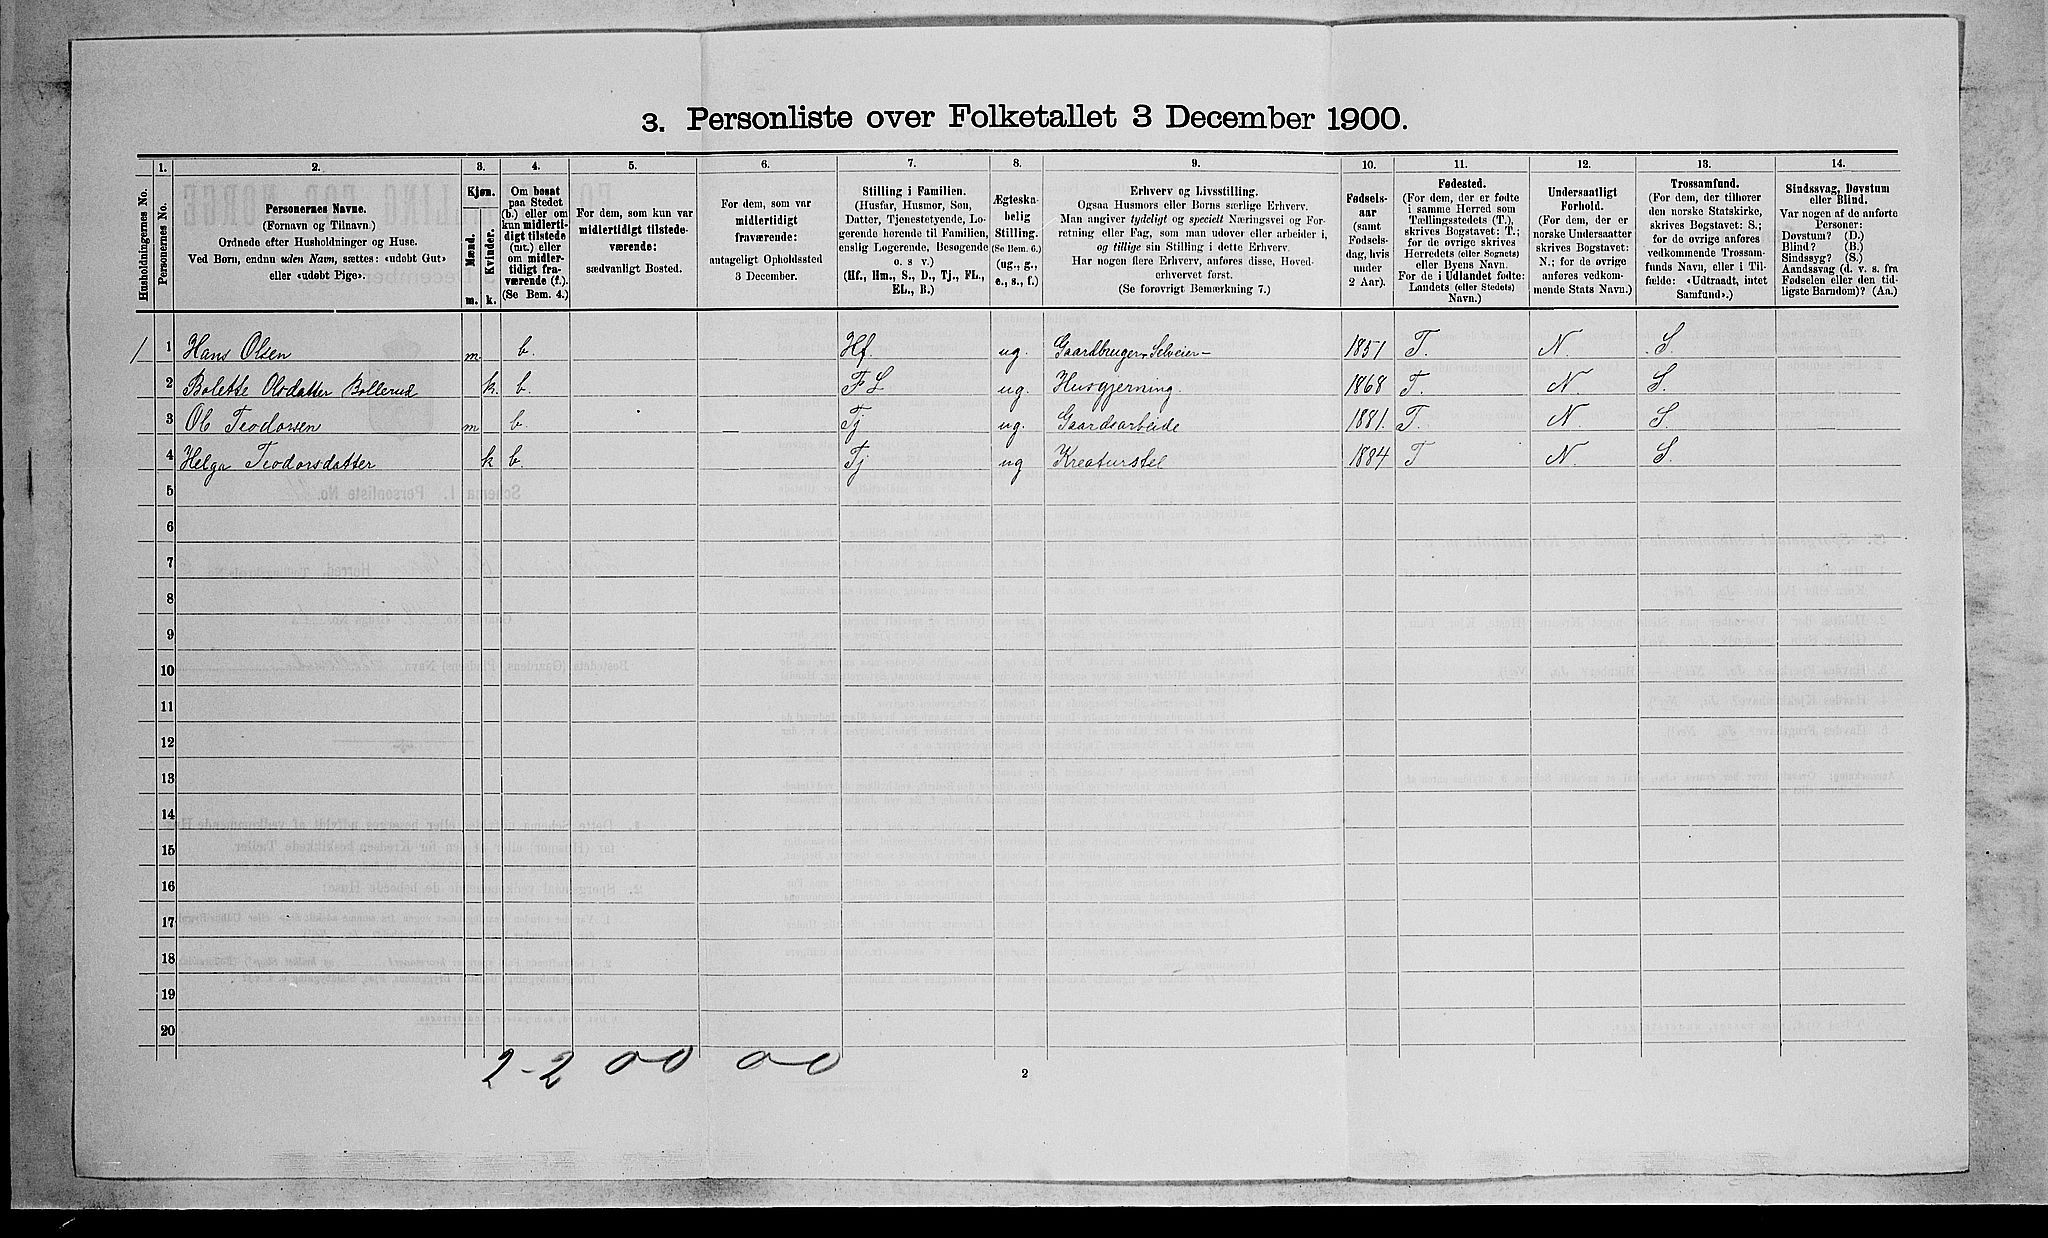 3. Personliste over Folketallet 3 December 1900.
1. 2. 3. 4. 5. 6. 7. 8. 9. 10. 11. 12. 13. 14.
Husholdningernes No.
Personernes No.
Personernes Navne.
(Fornavn og Tilnavn.)
Ordnede efter Husholdninger og Huse.
Ved Børn, endnu uden Navn, sættes: «udøbt Gut»
eller «udøbt Pige».
Kjøn.
Mænd.
Kvinder.
m. k.
Om bosat
paa Stedet
(b.) eller om
kun midlerti-
digt tilstede
(mt.) eller
om midler-
tidigt fra-
værende (f.).
(Se Bem. 4.)
For dem, som kun var
midlertidigt tilstede-
værende:
sædvanligt Bosted.
For dem, som var
midlertidigt
fraværende:
antageligt Opholdssted
3 December.
Stilling i Familien.
(Husfar, Husmor, Søn,
Datter, Tjenestetyende, Lo-
gerende hørende til Familien,
enslig Logerende, Besøgende
o. s v.)
(Hf., Hm., S., D., Tj., FL.,
EL., B.)
Ægteska-
belig
Stilling.
(Se Bem. 6.)
(ug., g.,
e., s., f.)
Erhverv og Livsstilling.
Ogsaa Husmors eller Børns særlige Erhverv.
Man angiver tydeligt og specielt Næringsvei og For-
retning eller Fag, som man udøver eller arbeider i,
og tillige sin Stilling i dette Erhverv.
Har nogen flere Erhverv, anføres disse, Hoved-
erhvervet først.
(Se forøvrigt Bemærkning 7.)
Fødsels-
aar
(samt
Fødsels-
dag, hvis
under
2 Aar).
Fødested.
(For dem, der er fødte
i samme Herred som
Tællingsstedets (T.),
skrives Bogstavet: T.;
for de øvrige skrives
Herredets (eller Sognets)
eller Byens Navn.
For de i Udlandet fødte:
Landets (eller Stedets)
Navn.)
Undersaatligt
Forhold.
(For dem, der er
norske Undersaatter
skrives Bogstavet:
N.; for de øvrige
anføres vedkom-
mende Stats Navn.)
Trossamfund.
(For dem, der tilhører
den norske Statskirke,
skrives Bogstavet: S.;
for de øvrige anføres
vedkommende Trossam-
funds Navn, eller i Til-
fælde: «Udtraadt, intet
Samfund».)
Sindssvag, Døvstum
eller Blind.
Var nogen af de anførte
Personer:
Døvstum? (D.)
Blind? (B.)
Sindssyg? (S.)
Aandssvag (d. v. s. fra
Fødselen eller den tid-
ligste Barndom)? (Aa.)
1 1 Hans Olsen m. b. Hf. ug. Gaardbruger Selveier 1851 T. N. S.
2 Bolette Olsdatter Bollerud k. b. FL ug. Husgjerning. 1868 T. N S.
3 Ole Teodorsen m b. Tj ug. Gaardsarbeide 1881. T. N S
4 Helga Teodorsdatter k b. Tj ug Kreaturstel 1884 T N. S.
5
6
7
8
9
10
11
12
13
14
15
16
17
18
19
20
2-2 00 00
2